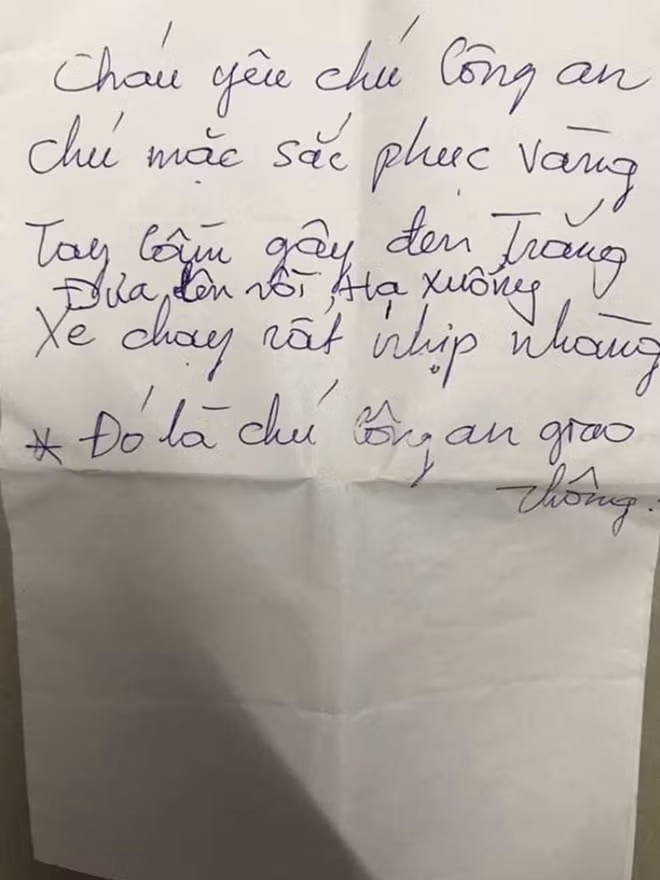 Cháu yêu chú Công an
chú mặc sắc phục vàng
Tay cầm gậy đen Trắng
Đưa lên rồi, Hạ xuống
Xe chạy rất nhịp nhàng
* Đó là chú Công an giao
thông.